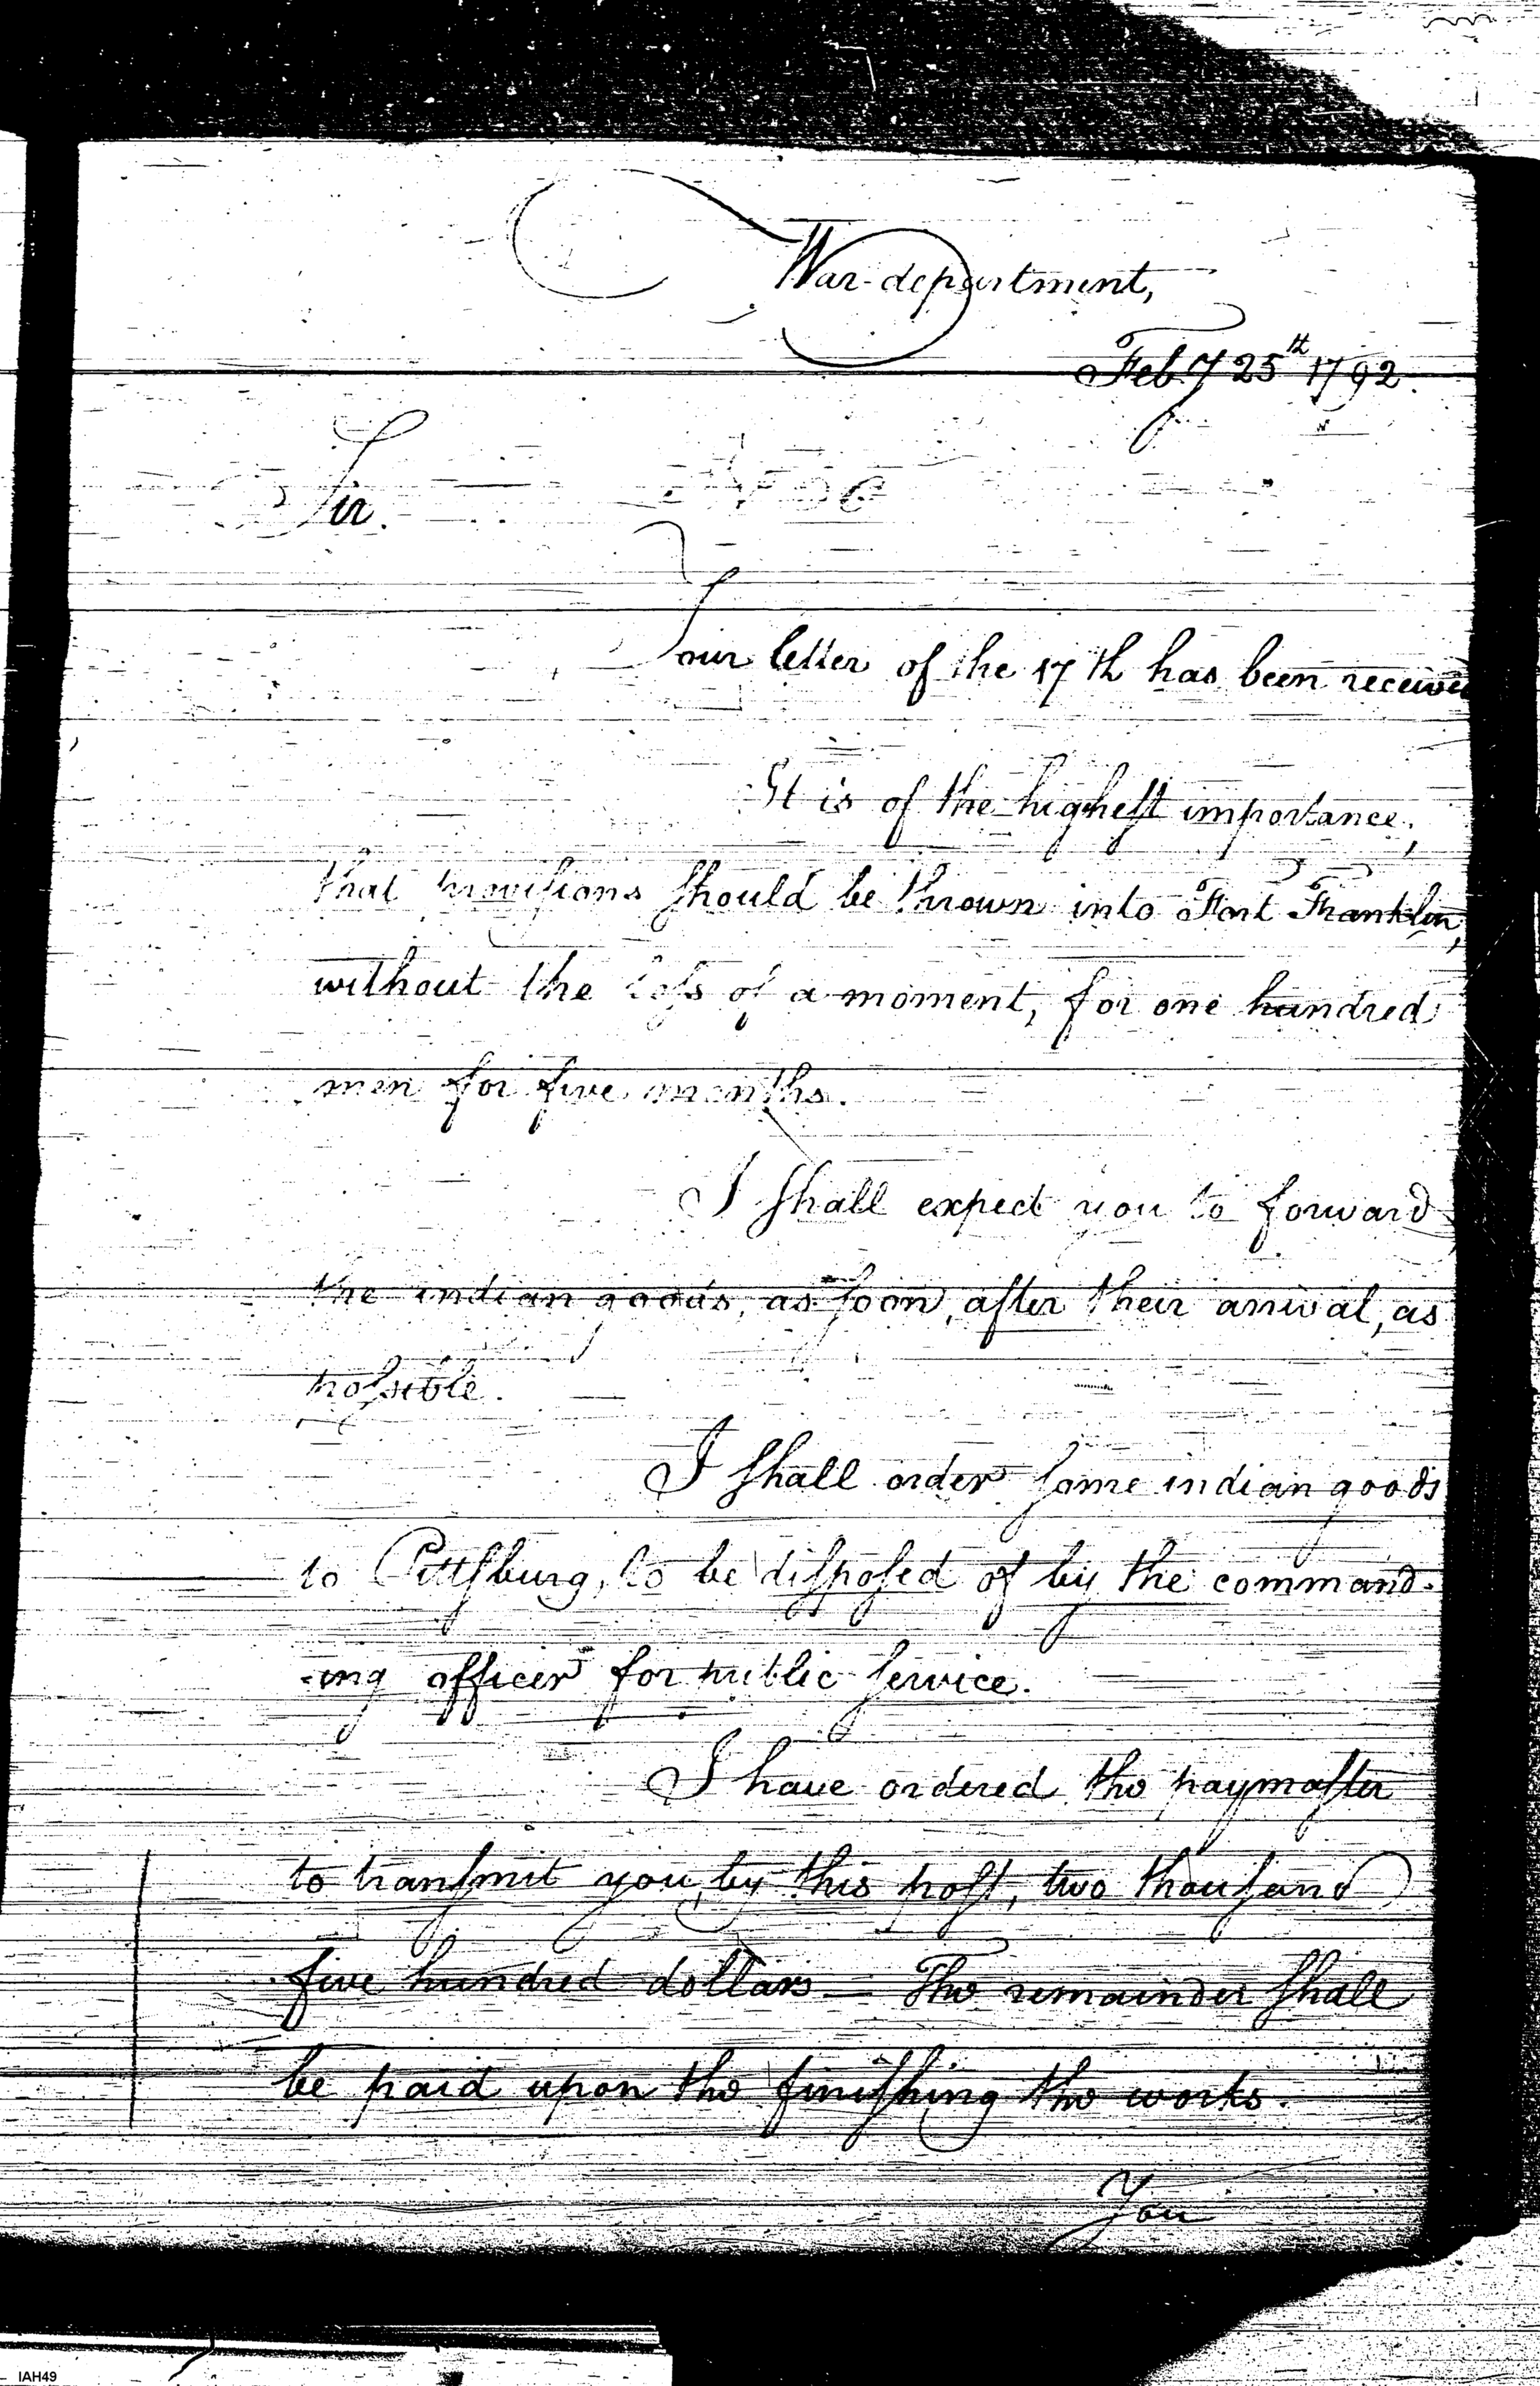 War-department,
Feby 25th 1792.
Sir.
Your letter of the 17th has been received
It is of the highest importance,
that provisions should be thrown into Fort Franklin,
without the loss of a moment, for one hundred
men for five months.
I shall expect you to forward
the indian goods, as soon, after their arrival, as
possible.
I shall order some indian goods
to Pittsburg, to be disposed of by the command-
-ing officer for public service.
I have ordered the paymaster
to transmit you, by this post, two thousand
five hundred dollars — The remainder shall
be paid upon the finishing the works.
You
IAH49